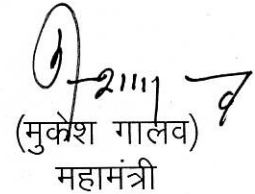 (मुकेश गालव)
महामंत्री